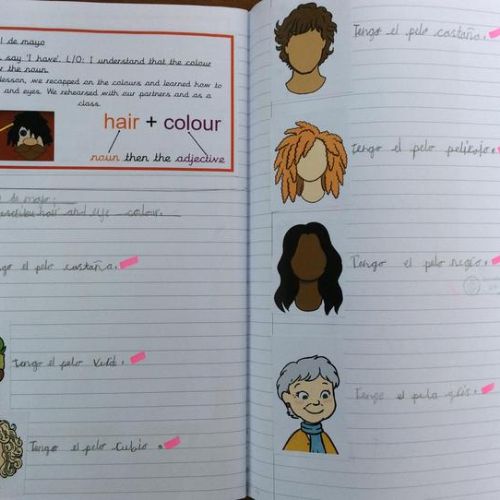 l de mayo
say 'I have'. L/O: I understand that the colour
r the noun.
lesson, we recapped on the colours and learned how to
and eyes. We rehearsed with our partners and as a
class.
hair + colour
noun then the adjective
de mayo
hair and eye colour.
go el pelo castaña.
tengo el pelo verd.
Tengo el pelo Cubio.
Tengo el pelo castaño.
tengo el pelo pelirojo.
Tengo el pelo negro.
Tengo el pelo gris.